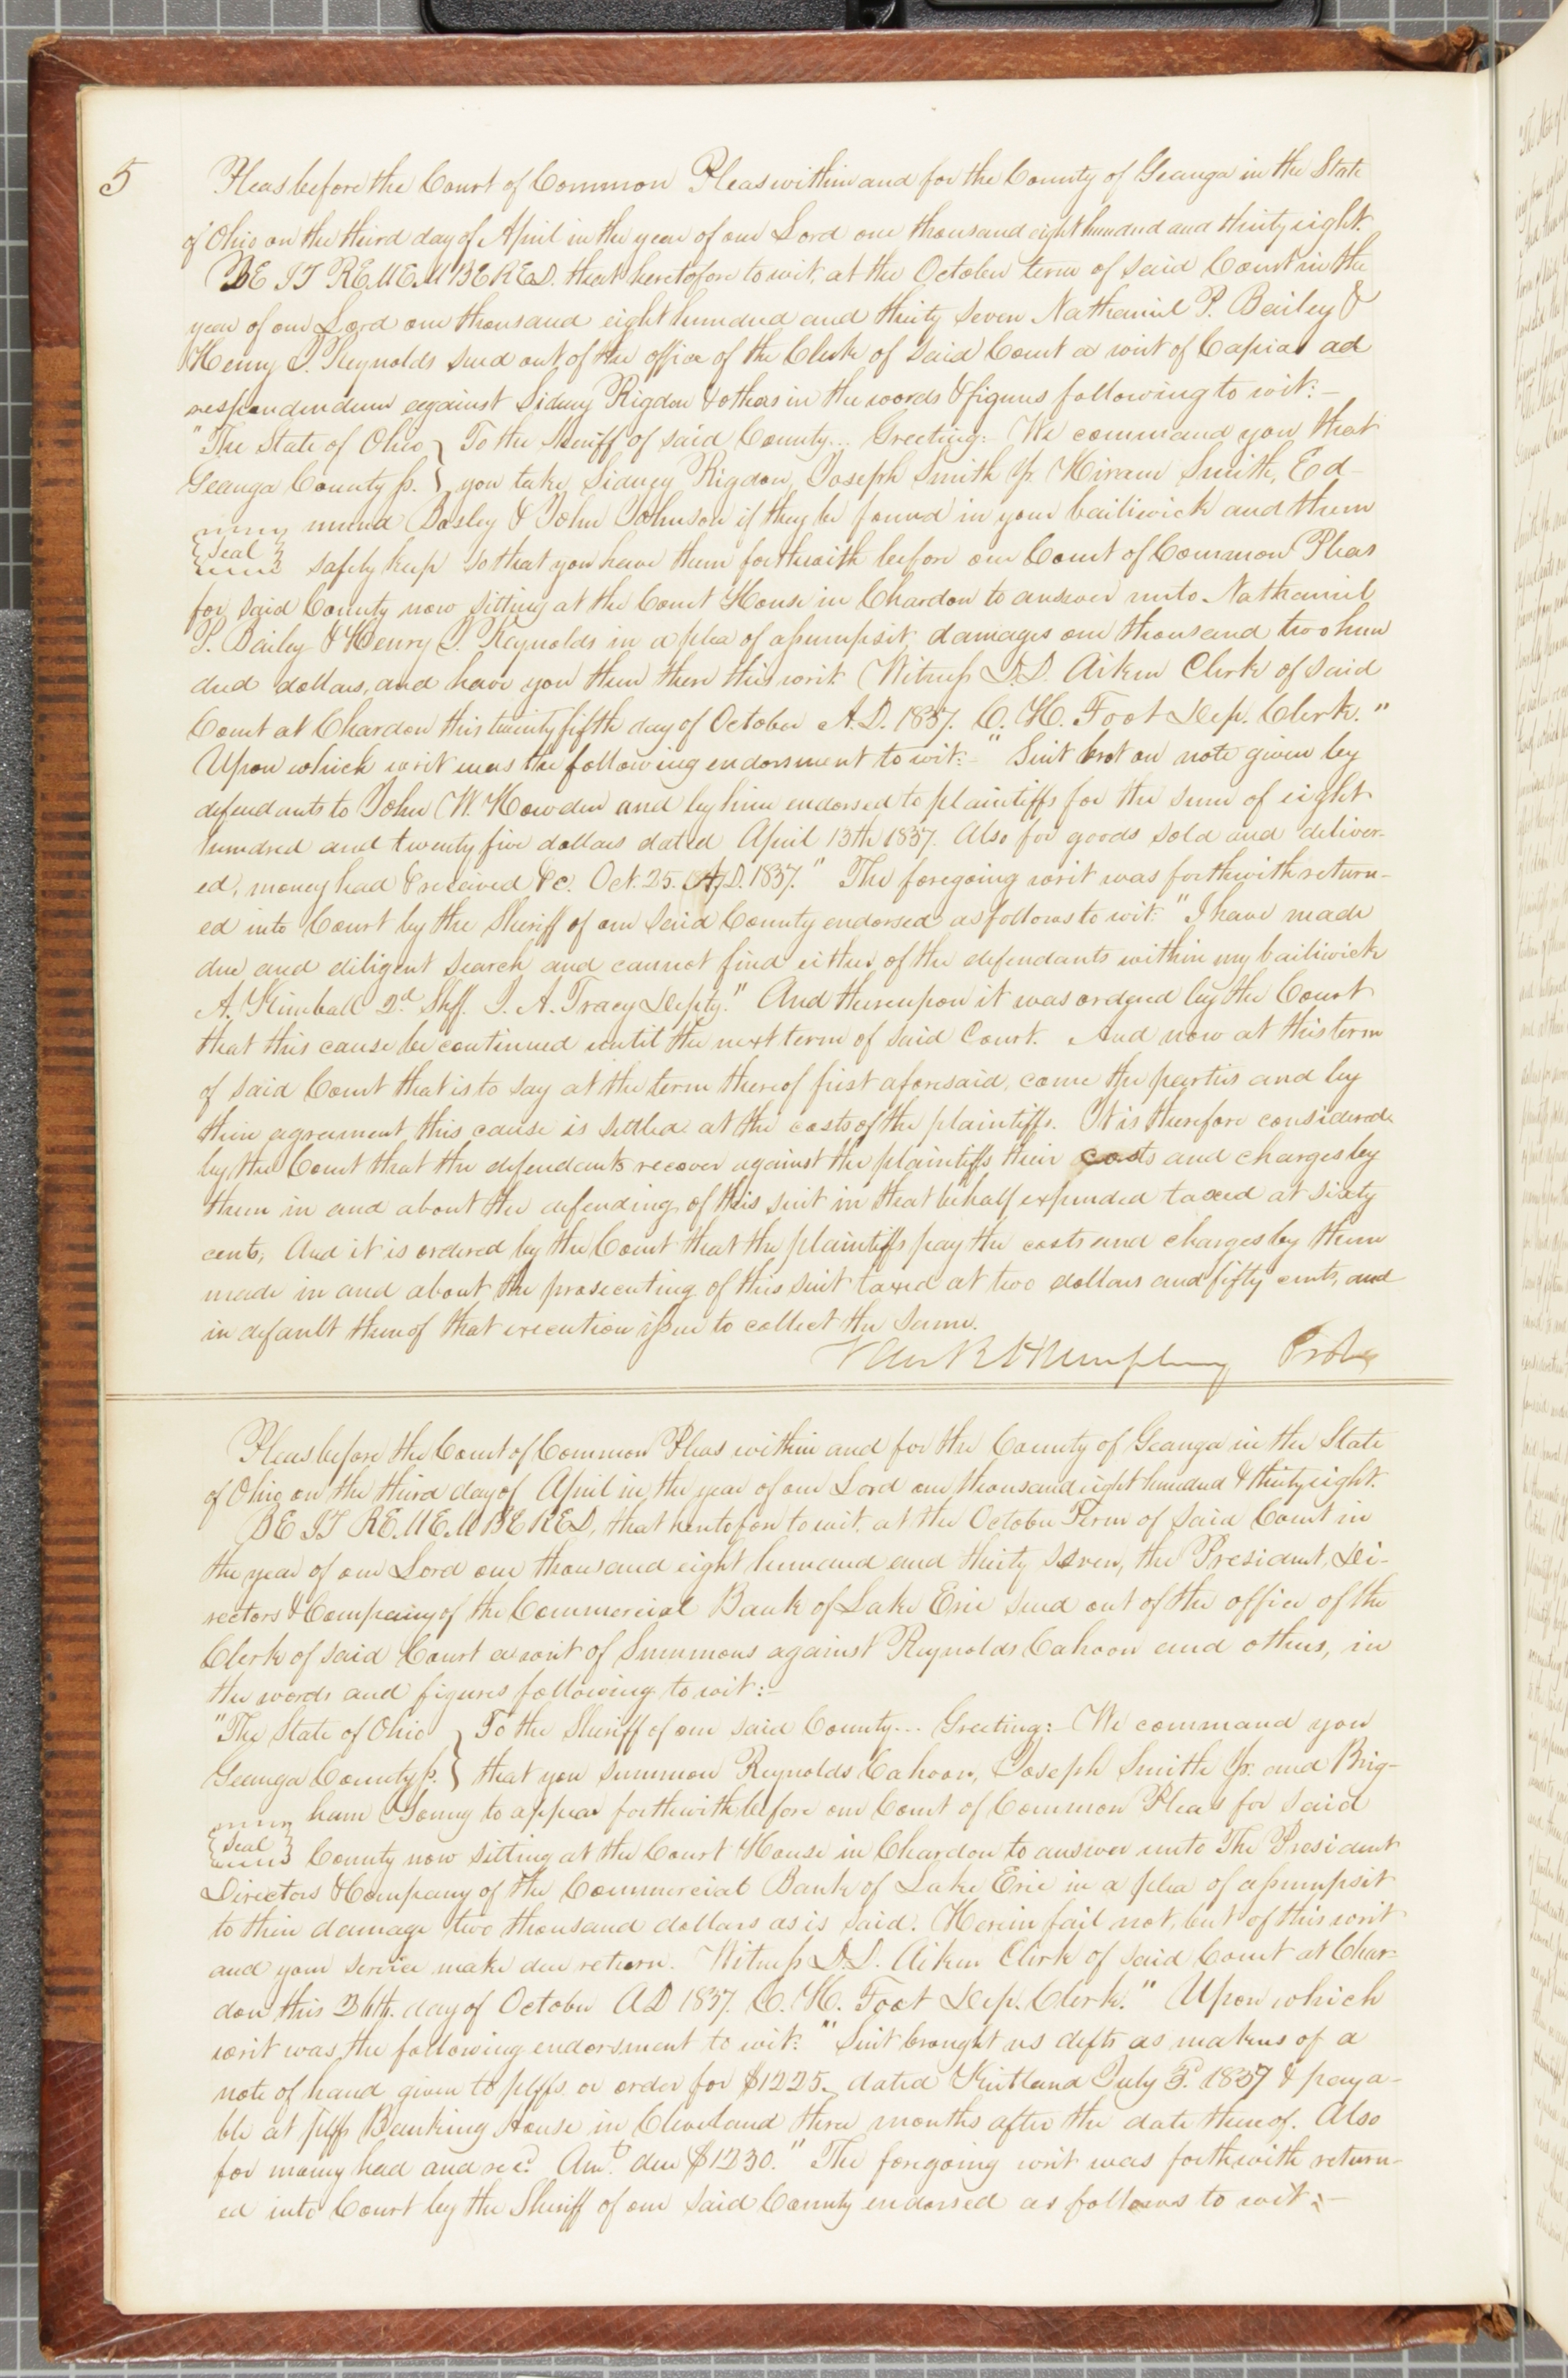 5
Pleas before the Court of Common Pleas within and for the County of Geauga in the State
of Ohio on the third day of April in the year of our Lord one thousand eight hundred and thirty eight.
BE IT REMEMBERED. that heretofore to wit, at the October term of said Court in the
year of our Lord one thousand eight hundred and thirty seven Nathaniel P. Bailey &
Henry S. Reynolds sued out of the office of the Clerk of said Court a writ of Capias ad
respondendum against Sidney Rigdon & others in the words & figures following to wit:—
"The State of Ohio } To the Sheriff of said County... Greeting:— We command you that
Geauga County ss. } you take Sidney Rigdon, Joseph Smith Jr. Hiram Smith, Ed-
mund Bosley & John Johnson if they be found in your bailiwick and them
{Seal} safely keep so that you have them forthwith before our Court of Common Pleas
for said County now sitting at the Court House in Chardon to answer unto Nathaniel
P. Bailey & Henry S. Reynolds in a plea of assumpsit damages one thousand two hun
dred dollars, and have you then there this writ. Witness D.D. Aiken Clerk of said
Court at Chardon this twenty fifth day of October A.D. 1837. C. H. Foot Dep. Clerk."
Upon which writ was the following endorsment to wit:— "Suit brot on note given by
defendants to John W. Howden and by him endorsed to plaintiffs for the sum of eight
hundred and twenty five dollars dated April 13th 1837. Also for goods sold and deliver-
ed, money had & received &c. Oct. 25. A.D. 1837." The foregoing writ was forthwith return-
ed into Court by the Sheriff of our said County endorsed as follows to wit: "I have made
due and diligent search and cannot find either of the defendants within my bailiwick
A. Kimball 2d. Shff. J. A. Tracy Depty." And thereupon it was ordered by the Court
that this cause be continued until the next term of said Court. And now at this term
of said Court that is to say at the term thereof first aforesaid, come the parties and by
their agreement this cause is settled at the costs of the plaintiffs. It is therefore considered
by the Court that the defendants recover against the plaintiffs their costs and charges by
them in and about the defending of this suit in that behalf expended taxed at sixty
cents, And it is ordered by the Court that the plaintiffs pay the costs and charges by them
made in and about the prosecuting of this suit taxed at two dollars and fifty cents, and
in default thereof that execution issue to collect the same.
Van R Humphrey
Pleas before the Court of Common Pleas within and for the County of Geauga in the State
of Ohio on the third day of April in the year of our Lord one thousand eight hundred & thirty eight.
BE IT REMEMBERED, that heretofore to wit, at the October Term of said Court in
the year of our Lord one thousand eight hundred and thirty seven, the President, Di-
rectors & Company of the Commercial Bank of Lake Erie sued out of the office of the
Clerk of said Court a writ of Summons against Reynolds Cahoon and others, in
the words and figures following to wit:—
"The State of Ohio } To the Sheriff of our said County... Greeting:— We command you
Geauga County ss. } that you summon Reynolds Cahoon, Joseph Smith Jr. and Brig-
ham Young to appear forthwith before our Court of Common Pleas for said
{Seal} County now sitting at the Court House in Chardon to answer unto The President
Directors & Company of the Commercial Bank of Lake Erie in a plea of assumpsit
to their damage two thousand dollars as is said. Herein fail not, but of this writ
and your service make due return. Witness D.D. Aiken Clerk of said Court at Char-
don this 26th. day of October AD 1837. C. H. Foot Dep. Clerk." Upon which
writ was the following endorsment to wit: "Suit brought vs defts as makers of a
note of hand given to plffs or order for $1225. dated Kirtland July 3d. 1837 & paya-
ble at plffs Banking House in Cleveland three months after the date thereof. Also
for money had and recd. Amt. due $1230." The foregoing writ was forthwith return-
ed into Court by the Sheriff of our said County endorsed as follows to wit:—